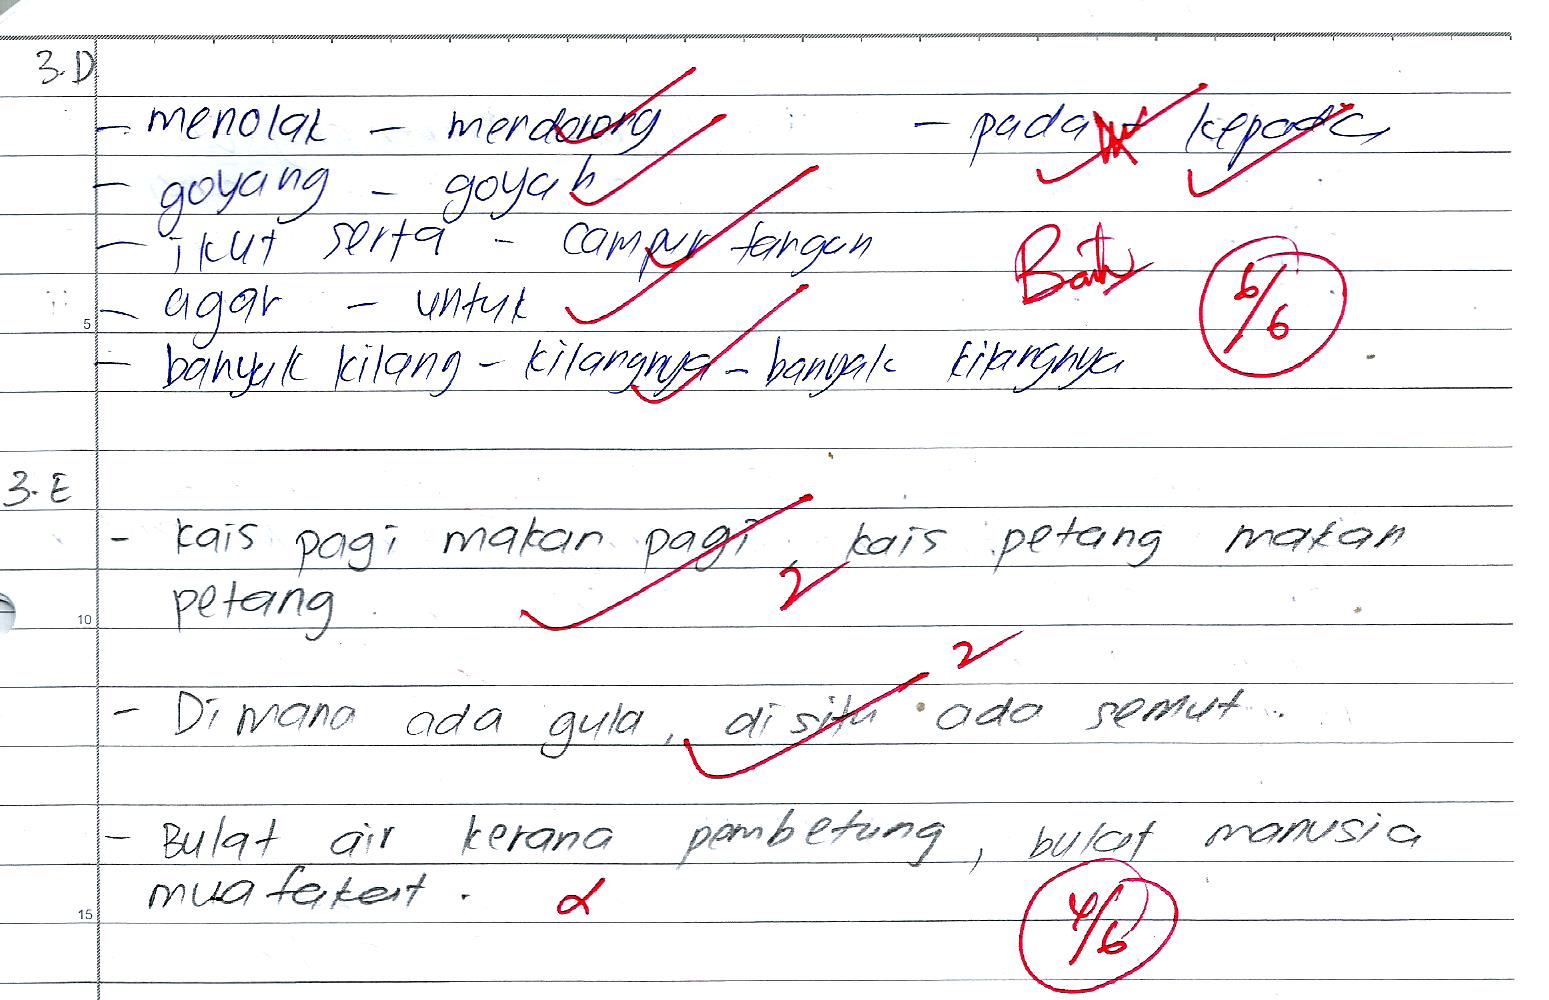 3.D
- menolak - mendorong - pada - kepada
- goyang - goyah
- ikut serta - campur tangan
Baik 6/6
- agar - untuk
5
- banyak kilang - kilangnya - banyak kilangnya
3.E
- kais pagi makan pagi, kais petang makan
2
petang.
10
2
- Dimana ada gula, disitu ada semut.
- Bulat air kerana pembetung, bulat manusia
muafakat.
15
4/6